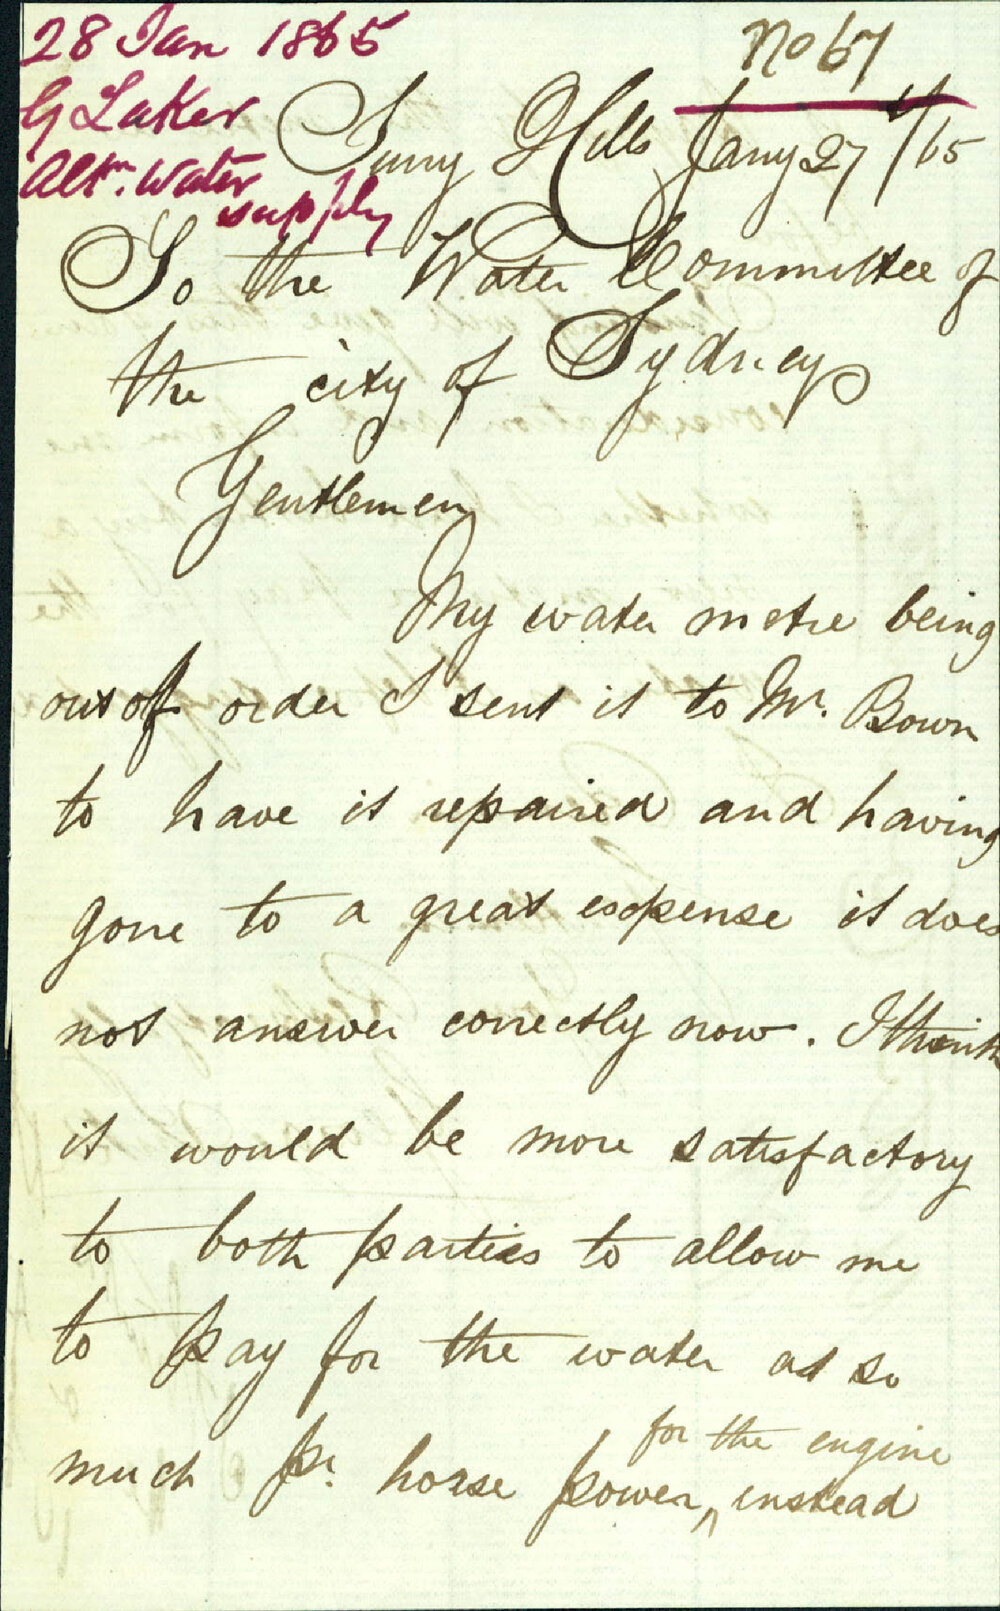 28 Jan 1865
No 67
G Laker
Altn. Water
supply
Surry Hills Jany 27 /65
To the Water Committee of
the city of Sydney
Gentlemen
My water metre being
out of order I sent it to Mr. Bown
to have it repaired and having
gone to a great expense it does
not answer correctly now. I think
it would be more satisfactory
to both parties to allow me
to pay for the water at so
for the engine
much pr. horse power, instead